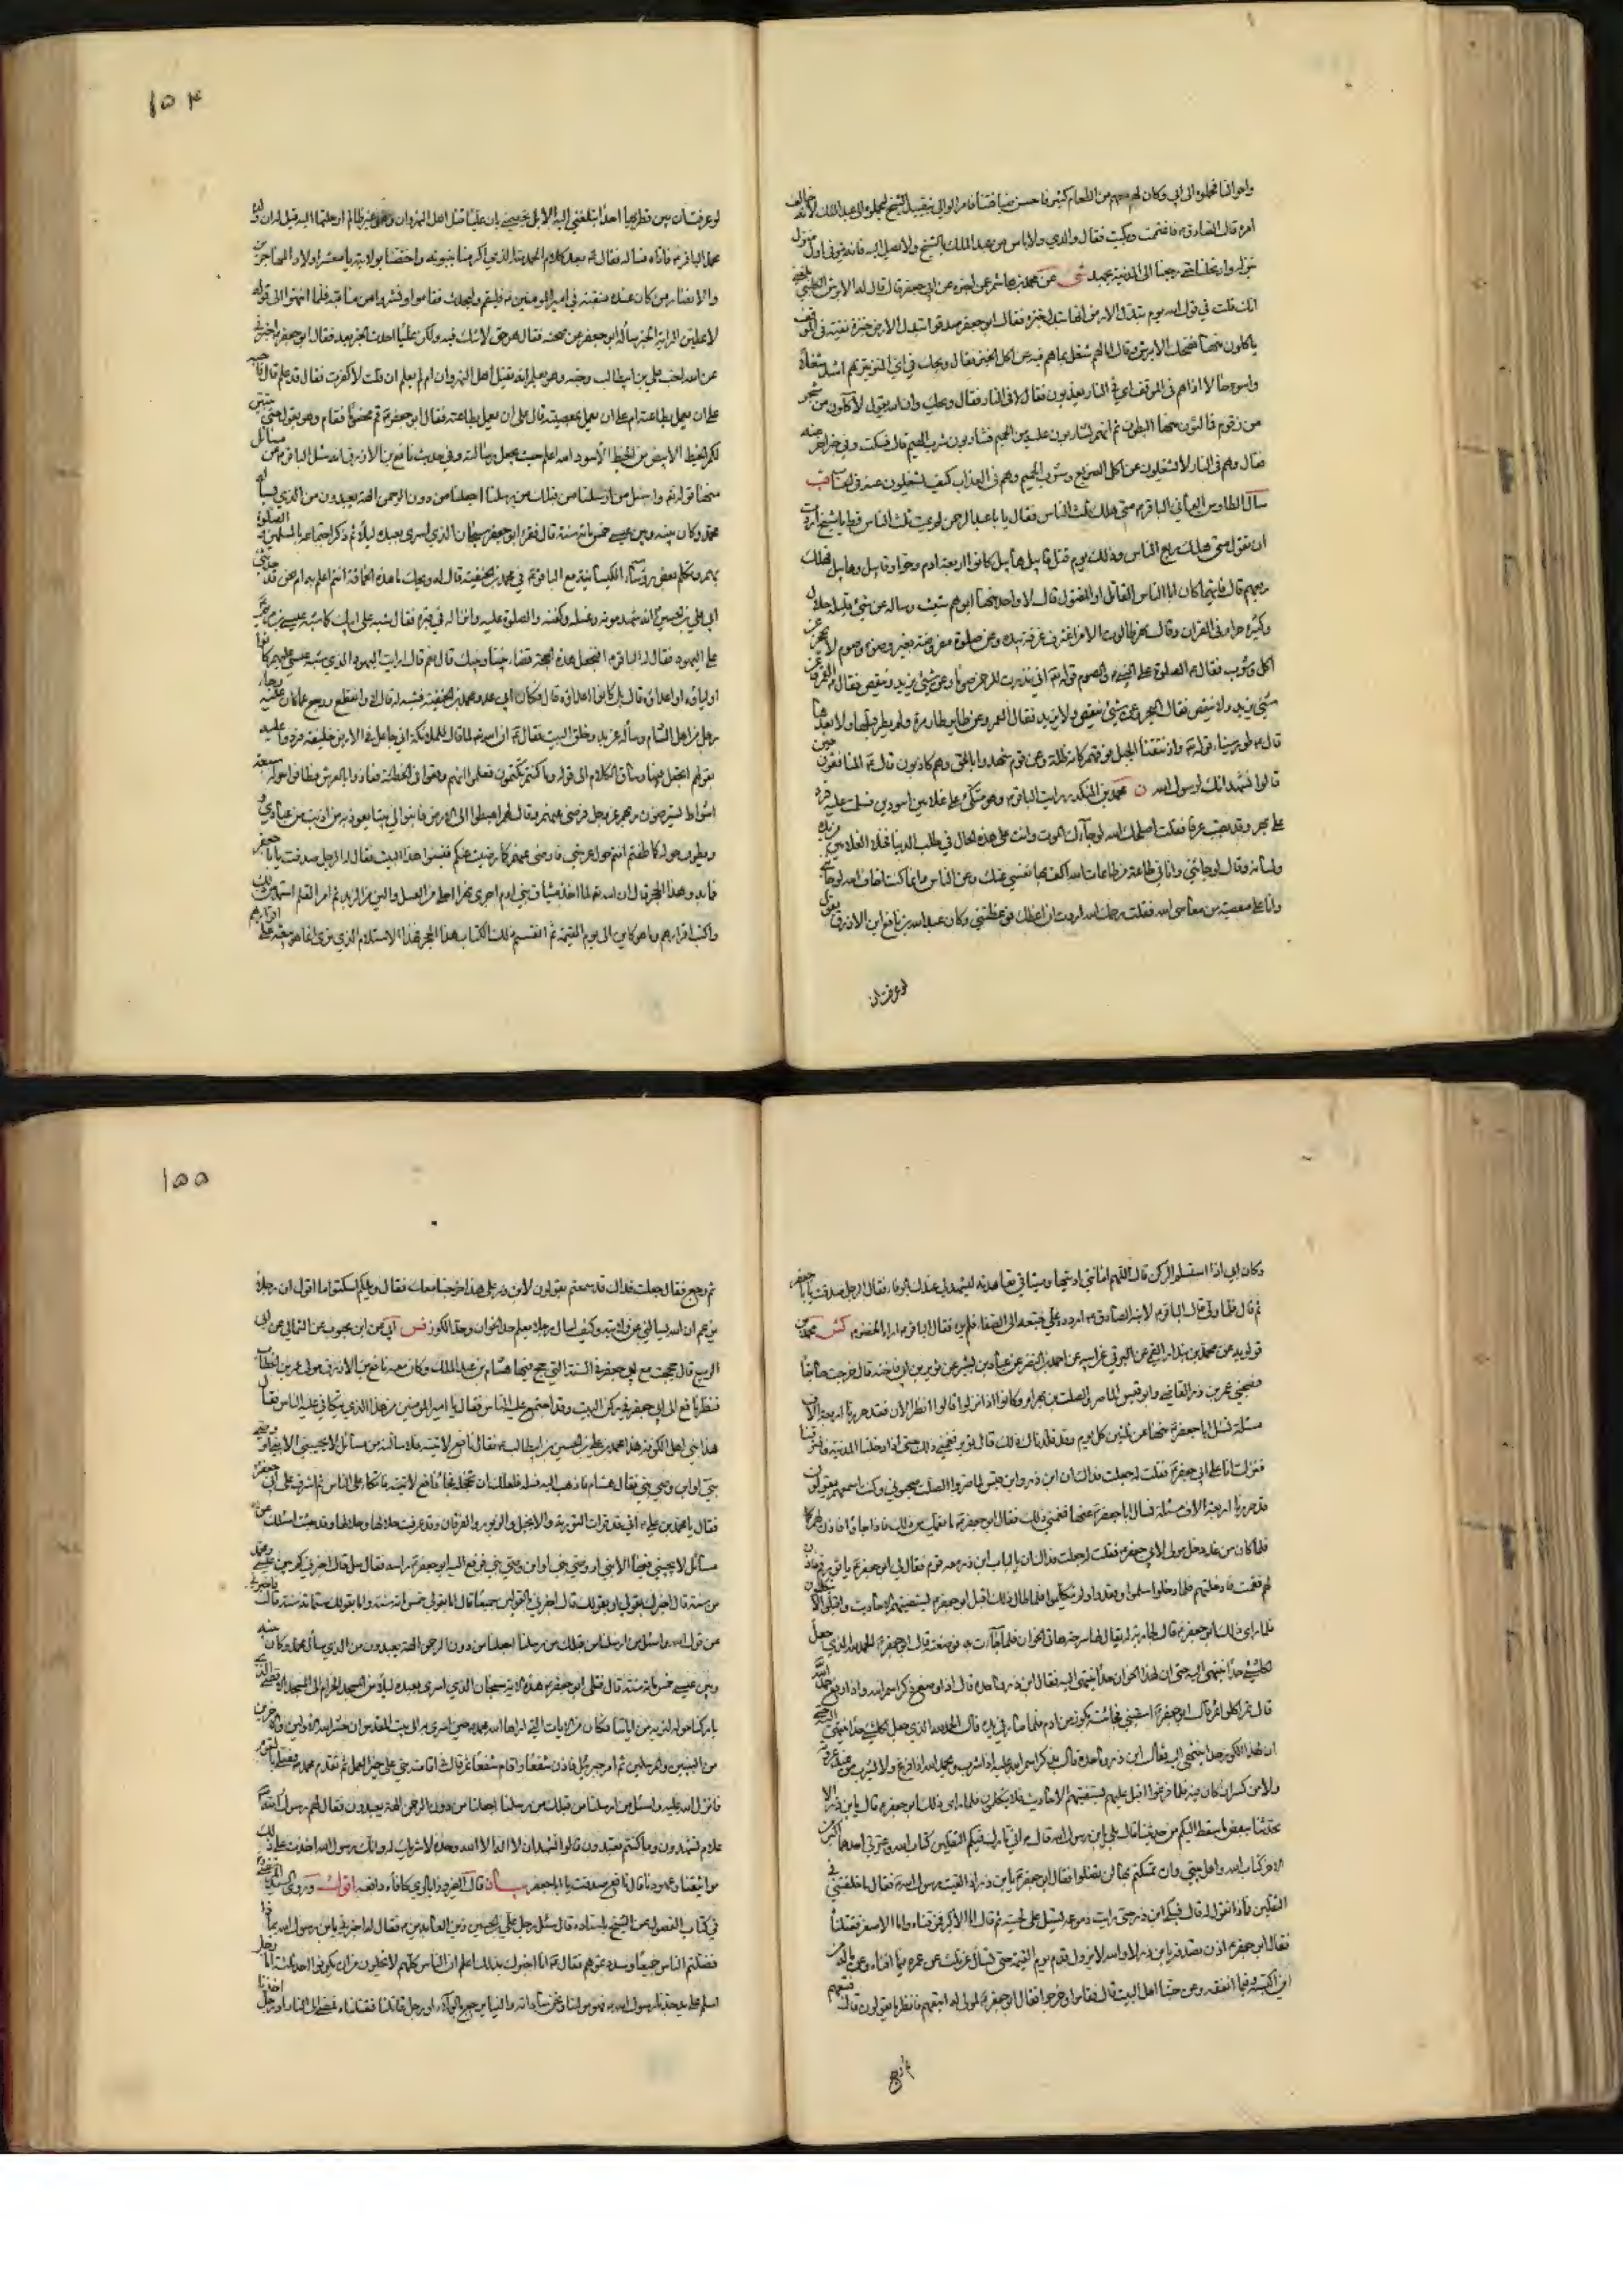 واحوالنا فحملوه الى ابى وكان لهم معهم من الطعام كثير فاحسن ضيافتنا فامر الوالى بتقييد الشيخ ليحملوه الى عبد الملك لانه خالف
امره قال الصادق ع فاغتممت وبكيت فقال والدى ولا باس من عبد الملك بالشيخ ولا يصل اليه فانه يتوفى اول منزل
ينزله وارتحلنا حتى رجعنا الى المدينة بجهد شى عن محمد بن هاشم عمن اخبره عن ابى جعفر قال قال له الابرش الكلبى بلغنى
انك قلت فى قول الله يوم تبدل الارض انها تبدل خبزة فقال ابو جعفر صدقوا تبدل الارض خبزة نقية فى الموقف
ياكلون منها فضحك الابرش وقال اما لهم شغل بما هم فيه عن اكل الخبز فقال ويحك فى اى المنزلتين هم اشد شغلا
واسوء حالا اذا هم فى الموقف او فى النار يعذبون فقال لا فى النار فقال ويحك وان الله يقول لآكلون من شجر
من زقوم فمالئون منها البطون ثم انهم لشاربون عليه من الحميم فشاربون شرب الهيم قال فسكت وفى خبر اخر عنه
فقال وهم فى النار لا يشغلون عن اكل الضريع وشرب الحميم وهم فى العذاب كيف يشغلون عنه فى الحساب قب
سأل الطاوس اليمانى الباقر ع متى هلك ثلث الناس فقال يا با عبد الرحمن لم يمت ثلث الناس قط يا شيخ اردت
ان تقول متى هلك ربع الناس وذلك يوم قتل قابيل هابيل كانوا اربعة ادم وحوا وقابيل وهابيل فهلك
ربعهم قال فايهما كان ابا الناس القاتل او المقتول قال لا واحد منهما ابوهم شيث وساله عن شئ قليله حلال
وكثيره حرام فى القران قال نهر طالوت الا من اغترف غرفة بيده وعن صلوة مفروضة بغير وضوء وصوم لا يحجز عن
اكل وشرب فقال ع الصلوة على النبى ع والصوم قوله تعالى انى نذرت للرحمن صوما وعن شئ يزيد وينقص فقال ع القمر وعن
شئ يزيد ولا ينقص فقال البحر وعن شئ ينقص ولا يزيد فقال العمر وعن طاير طار مرة ولم يطر قبلها ولا بعدها
قال ع طور سيناء قوله تعالى واذ نتقنا الجبل فوقهم كانه ظلة وعن قوم شهدوا بالحق وهم كاذبون قال ع المنافقون حين
قالوا نشهد انك لرسول الله ن محمد بن المنكدر رايت الباقر ع وهو متكئ على غلامين اسودين فسلمت عليه فرد
على بهر وقد تصبب عرقا فقلت اصلحك الله لو جاءك الموت وانت على هذه الحال فى طلب الدنيا فخلى الغلامين من يده
وتساند وقال لو جاءنى وانا فى طاعة من طاعات الله اكف بها نفسى عنك وعن الناس وانما كنت اخاف الله لو جاءنى
وانا على معصية من معاصى الله فقلت يرحمك الله اردت ان اعظك فوعظتنى وكان عبد الله بن نافع ابن الازرق يقول
لو عرفت ان
۱۵۴
لو عرفت ان بين قطريها احدا تبلغنى اليه الابل يخصمنى بان عليا قتل اهل النهروان وهو غير ظالم لرحلتها اليه قيل له ائت ولده
محمد الباقر ع فاتاه فساله فقال ع بعد كلام الحمد لله الذى اكرمنا بنبوته واختصنا بولايته يا معشر اولاد المهاجرين
والانصار من كان عنده منقبة فى امير المؤمنين ع فليقم وليحدث فقاموا ونشروا من مناقبه فلما انتهوا الى قوله
لاعطين الراية الخبر ساله ابو جعفر عن صحته فقال هو حق لا شك فيه ولكن عليا احدث الكفر بعد فقال ابو جعفر اخبرنى
عن الله احب على بن ابيطالب يوم احبه وهو يعلم انه يقتل اهل النهروان ام لم يعلم ان قلت لا كفرت فقال قد علم قال فاحبه
على ان يعمل بطاعته ام على ان يعمل بمعصيته قال على ان يعمل بطاعته فقال ابو جعفر ع قم مخصوما فقام وهو يقول حتى يتبين
لكم الخيط الابيض من الخيط الاسود الله اعلم حيث يجعل رسالته وفى حديث نافع بن الازرق انه سئل الباقر ع عن مسائل
منها قوله تعالى واسئل من ارسلنا من قبلك من رسلنا اجعلنا من دون الرحمن الهة يعبدون من الذى يساله
محمد وكان بينه وبين عيسى خمس مائة سنة قال فقرء ابو جعفر سبحان الذى اسرى بعبده ليلا ثم ذكر اجتماعه بالمرسلين والصلوة
بهم وتكلم بعض رؤساء الكيسانية مع الباقر ع فى محمد بن الحنفية قال له ويحك ما هذه الحماقة انتم اعلم به ام نحن قد حدثنى
ابى على بن الحسين انه شهد موته وغسله وكفنه والصلوة عليه وانزاله فى قبره فقال شبه على ابيك كما شبه عيسى بن مريم
على اليهود فقال له الباقر ع افتجعل هذه الحجة قضاء بيننا وبينك قال نعم قال ارايت اليهود الذين شبه عيسى عليهم كانوا
اولياؤه او اعداؤه قال بل كانوا اعداؤه قال فكان ابى عدو محمد بن الحنفية فشبه له قال لا وانقطع ورجع عما كان عليه وجاءه
رجل من اهل الشام وساله عن بدو خلق البيت فقال ع ان الله تعالى لما قال للملائكة انى جاعل فى الارض خليفة فردوا عليه
بقولهم اتجعل فيها وساق الكلام الى قوله وما كنتم تكتمون فعلموا انهم وقعوا فى الخطيئة فعاذوا بالعرش فطافوا حوله سبعة
اشواط يسترضون ربهم عز وجل فرضى عنهم وقال لهم اهبطوا الى الارض فابنوا لى بيتا يعوذ به من اذنب من عبادى
ويطوف حوله كما طفتم انتم حول عرشى فارضى عنهم كما رضيت عنكم فبنوا هذا البيت فقال له الرجل صدقت يا با جعفر
فما بدو هذا الحجر قال ان الله تعالى لما اخذ ميثاق بنى ادم اجرى نهرا احلى من العسل والين من الزبد ثم امر القلم استمد من ذلك
وكتب اقرارهم وما هو كاين الى يوم القيمة ثم القم ذلك الكتاب هذا الحجر فهذا الاستلام الذى ترى انما هو بيعة على اقرارهم
وكان ابى اذا استلم الركن قال اللهم امانتى اديتها وميثاقى تعاهدته ليشهد لى عندك بالوفاء فقال الرجل صدقت يا با جعفر
ثم قام فلما ولى قال الباقر ع لابنه الصادق ع اردده على فتبعه الى الصفا فلم يره فقال الباقر ع اراه الخضر ع كش محمد بن
قولويه عن محمد بن بندار القمى عن البرقى عن ابيه عن احمد بن النضر عن عباد بن بشير عن ثوير بن ابى فاخته قال خرجت حاجا
فصحبنى عمر بن ذر القاضى وابن قيس الماصر والصلت بن بهرام وكانوا اذا نزلوا قالوا انظر الان فقد حررنا اربعة الاف
مسئلة نسئل ابا جعفر ع منها عن ثلثين كل يوم وقد قلدناك ذلك قال ثوير فغمنى ذلك حتى اذا دخلنا المدينة فافترقنا
فنزلت انا على ابى جعفر ع فقلت له جعلت فداك ان ابن ذر وابن قيس الماصر والصلت صحبونى وكنت اسمعهم يقولون
قد حررنا اربعة الاف مسئلة نسال ابا جعفر ع عنها فغمنى ذلك فقال ابو جعفر ع ما يغمك من ذلك فاذا جاؤا فاذن لهم
فلما كان من غد دخل مولى لابى جعفر ع فقلت له جعلت فداك ان بالباب ابن ذر معه قوم فقال لى ابو جعفر ع يا ثوير قم فاذن
لهم فقمت فادخلتهم فلما دخلوا سلموا وقعدوا ولم يتكلموا فلما طال ذلك اقبل ابو جعفر ع يستفتيهم الاحاديث واقبلوا لا يتكلمون
فلما راى ذلك ابو جعفر ع قال لجارية له يقال لها سرحة هاتى الخوان فلما جاءت به فوضعته قال ابو جعفر ع الحمد لله الذى جعل
لكل شئ حدا ينتهى اليه حتى ان لهذا الخوان حدا ينتهى اليه فقال ابن ذر وما حده قال اذا وضع ذكر اسم الله واذا رفع حمد الله
قال ثم اكلوا ثم قال ابو جعفر ع اسقينى فجاءته بكوز من ادم فلما صار فى يده قال الحمد لله الذى جعل لكل شئ حدا ينتهى اليه حتى
ان لهذا الكوز حدا ينتهى اليه فقال ابن ذر وما حده قال يذكر اسم الله عليه اذا شرب ويحمد الله اذا فرغ ولا يشرب من عند عروته
ولا من كسر ان كان فيه فلما فرغوا اقبل عليهم يستفتيهم الاحاديث فلا يتكلمون فلما راى ذلك ابو جعفر ع قال يا بن ذر الا
تحدثنا ببعض ما سقط اليكم من حديثنا قال بلى يا بن رسول الله قال ع انى تارك فيكم الثقلين كتاب الله وعترتى احدهما اكبر من
الاخر كتاب الله واهل بيتى وان تمسكتم بهما لن تضلوا فقال ابو جعفر ع يا بن ذر اذا لقيت رسول الله ص فقال ما خلفتنى فى
الثقلين فماذا تقول له قال فبكى ابن ذر حتى رايت دموعه تسيل على لحيته ثم قال اما الاكبر فمزقناه واما الاصغر فقتلناه
فقال ابو جعفر ع اذن تصدقه يا بن ذر لا والله لا يزول قدم يوم القيمة حتى تسأل عن ثلث عن عمره فيما افناه وعن ماله من
اين اكتسبه وفيما انفقه وعن حبنا اهل البيت قال فقاموا وخرجوا فقال ابو جعفر ع لمولى له اتبعهم فانظر ما يقولون قال فتبعهم
ثم رجع
۱۵۵
ثم رجع فقال جعلت فداك قد سمعتهم يقولون لابن ذر على هذا خرجنا معك فقال ويلكم اسكتوا ما اقول ان رجلا
يزعم ان الله يسالنى عن ولايته وكيف اسال رجلا يعلم حد الخوان وحد الكوز فس ابى عن ابن محبوب عن الثمالى عن ابى
الربيع قال حججت مع ابى جعفر ع فى السنة التى حج فيها هشام بن عبد الملك وكان معه نافع بن الازرق مولى عمر بن الخطاب
فنظر نافع الى ابى جعفر ع فى ركن البيت وقد اجتمع عليه الناس فقال يا امير المؤمنين من هذا الذى تتكافى عليه الناس فقال
هذا نبى اهل الكوفة هذا محمد بن على بن الحسين بن على بن ابيطالب ع فقال نافع لاتينه فلاسالنه عن مسائل لا يجيبنى الا نبى او وصى
نبى او ابن وصى نبى فقال هشام فاذهب اليه فسله فلعلك ان تخجله فجاء نافع فاتكا على الناس ثم اشرف على ابى جعفر
فقال يا محمد بن على انى قد قرات التورية والانجيل والزبور والفرقان وقد عرفت حلالها وحرامها وقد جئت اسئلك عن
مسائل لا يجيبنى فيها الا نبى او وصى نبى او ابن وصى نبى فرفع اليه ابو جعفر ع راسه فقال سل قال اخبرنى كم بين عيسى ومحمد
من سنة قال اخبرك بقولى او بقولك قال اخبرنى بالقولين جميعا قال اما بقولى خمس مائة سنة واما بقولك ستمائة سنة قال فاخبرنى
عن قول الله واسئل من ارسلنا من قبلك من رسلنا اجعلنا من دون الرحمن الهة يعبدون من الذى سأل محمد وكان بينه
وبين عيسى خمس مائة سنة قال فتلى ابو جعفر ع هذه الاية سبحان الذى اسرى بعبده ليلا من المسجد الحرام الى المسجد الاقصى الذى
باركنا حوله لنريه من اياتنا فكان من الايات التى اراها الله محمدا ص حين اسرى به الى بيت المقدس ان حشر الله الاولين والاخرين
من النبيين والمرسلين ثم امر جبرئيل فاذن شفعا واقام شفعا ثم قال فى اقامته حى على خير العمل ثم تقدم محمد ص فصلى بالقوم
فانزل الله عليه واسئل من ارسلنا من قبلك من رسلنا اجعلنا من دون الرحمن الهة يعبدون فقال لهم رسول الله ص
علام تشهدون وما كنتم تعبدون قالوا نشهد ان لا اله الا الله وحده لا شريك له وانك رسول الله اخذت على ذلك
مواثيقنا وعهودنا قال نافع صدقت يا ابا جعفر بيان قال الفيروزابادى كافاه دافعه اقول وروى السيد المرتضى
فى كتاب الفصول عن الشيخ باسناده قال سئل رجل على بن الحسين زين العابدين ع فقال له اخبرنى يا بن رسول الله بماذا
فضلتم الناس جميعا وسدتموهم فقال ع انا اخبرك بذلك اعلم ان الناس كلهم لا يخلون من ان يكونوا احد ثلثة اما رجل
اسلم على يد جدنا رسول الله ص فهو مولانا ونحن ساداته والينا يرجع بالولاء او رجل قاتلنا فقتلناه فمضى الى النار او رجل اخذنا